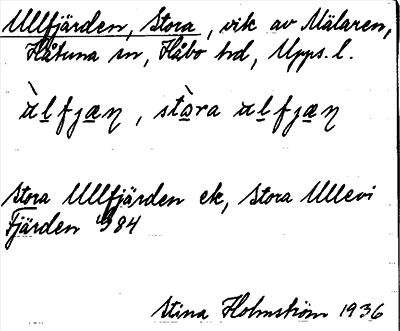 Ullfjärden, Stora, vik av Mälaren,
Håtuna sn, Håbo hd, Upps. l.
ùlfjæɳ, stòra ulfjæɳ
Stora Ullfjärden ek, Stora Ullevi
Fjärden 1984
Stina Holmström 1936